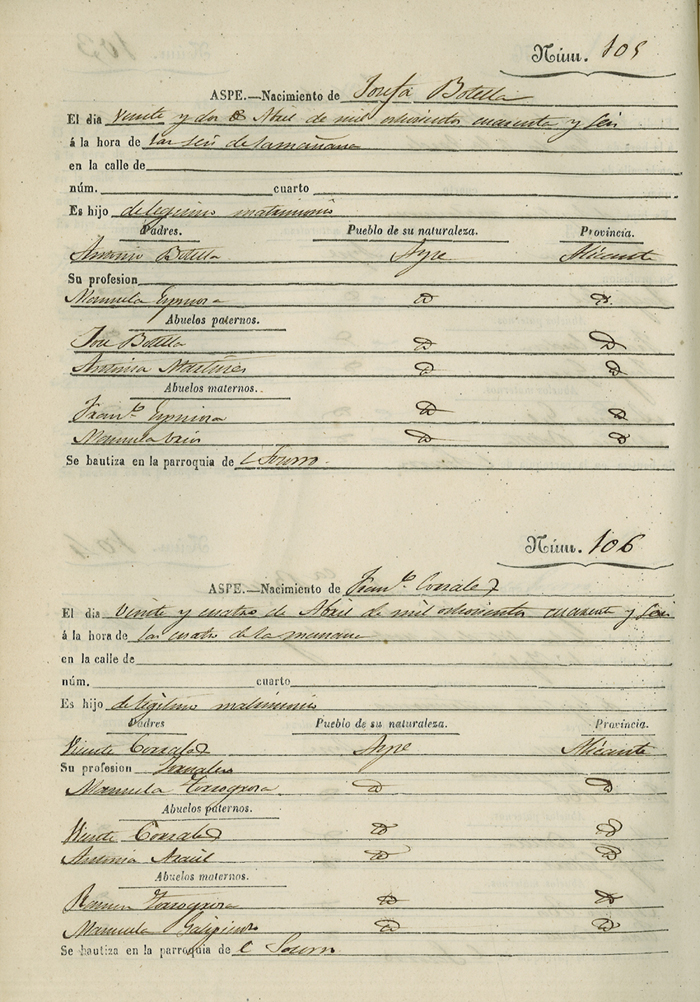 Núm. 105
ASPE.—Nacimiento de Josefa Botella
El dia veinte y dos de Abril de mil ochocientos cuarenta y seis
á la hora de las seis de la mañana
en la calle de
núm. cuarto
Es hijo de legitimo matrimonio
Padres. Pueblo de su naturaleza. Provincia.
Antonio Botella Aspe Alicante
Su profesion
Manuela Espinosa D D
Abuelos paternos.
Jose Botella D D
Antonia Martinez D D
Abuelos maternos.
Franco. Espinosa D D
Manuela D D
Se bautiza en la parroquia de el Socorro.
Núm. 106
ASPE.—Nacimiento de Franco. Gonzalez
El dia veinte y cuatro de Abril de mil ochocientos cuarenta y seis
á la hora de las cuatro de la mañana
en la calle de
núm. cuarto
Es hijo de legitimo matrimonio
Padres Pueblo de su naturaleza. Provincia.
Vicente Gonzalez Aspe Alicante
Su profesion Jornalero
Manuela Torregrosa D D
Abuelos paternos.
Vicente Gonzalez D D
Antonia D D
Abuelos maternos.
Ramon Torregrosa D D
Manuela Galipienso D D
Se bautiza en la parroquia de el Socorro.